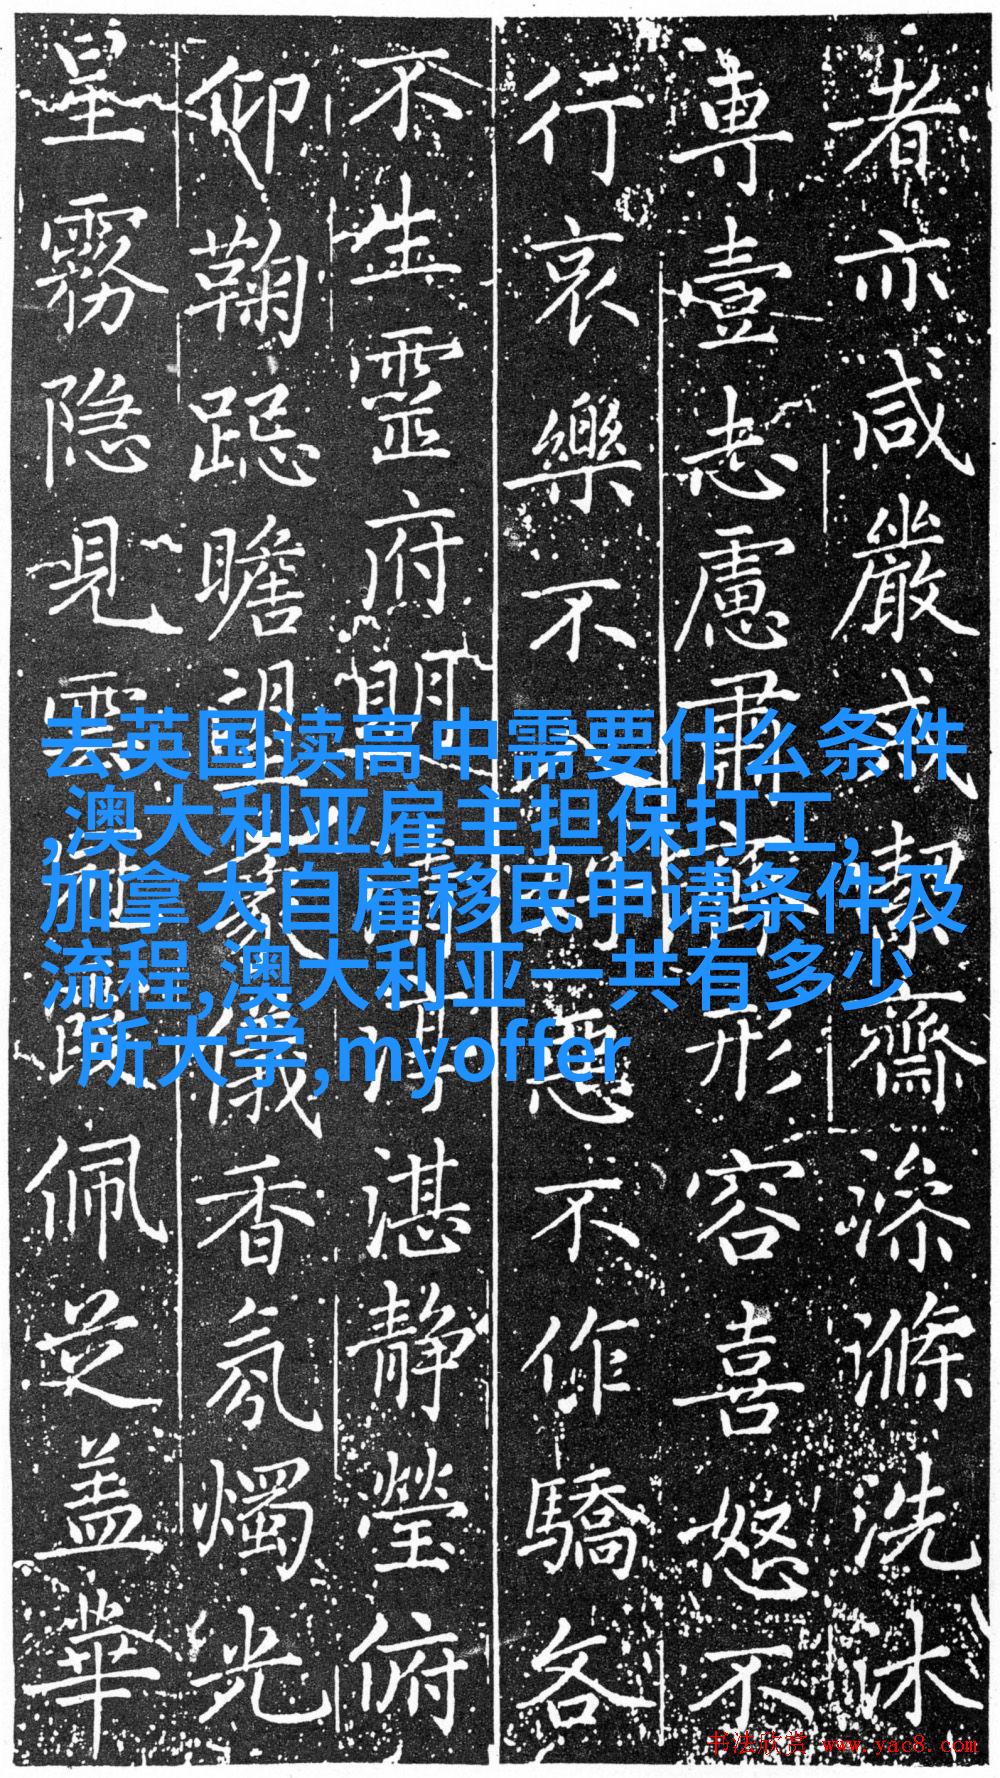 者亦咸嚴戒絜齋澡滌洗沐
専壹志慮肅形容喜怒不
行哀樂不惡不作驕各
不生靈府湛静瑩俯
仰鞠跽瞻望儀香氛燭光
星霧隐見雲佩芝盖華
去英国读高中需要什么条件
,澳大利亚雇主担保打工,
加拿大自雇移民申请条件及
流程,澳大利亚一共有多少
所大学,myoffer
书法欣赏 www.yac8.com